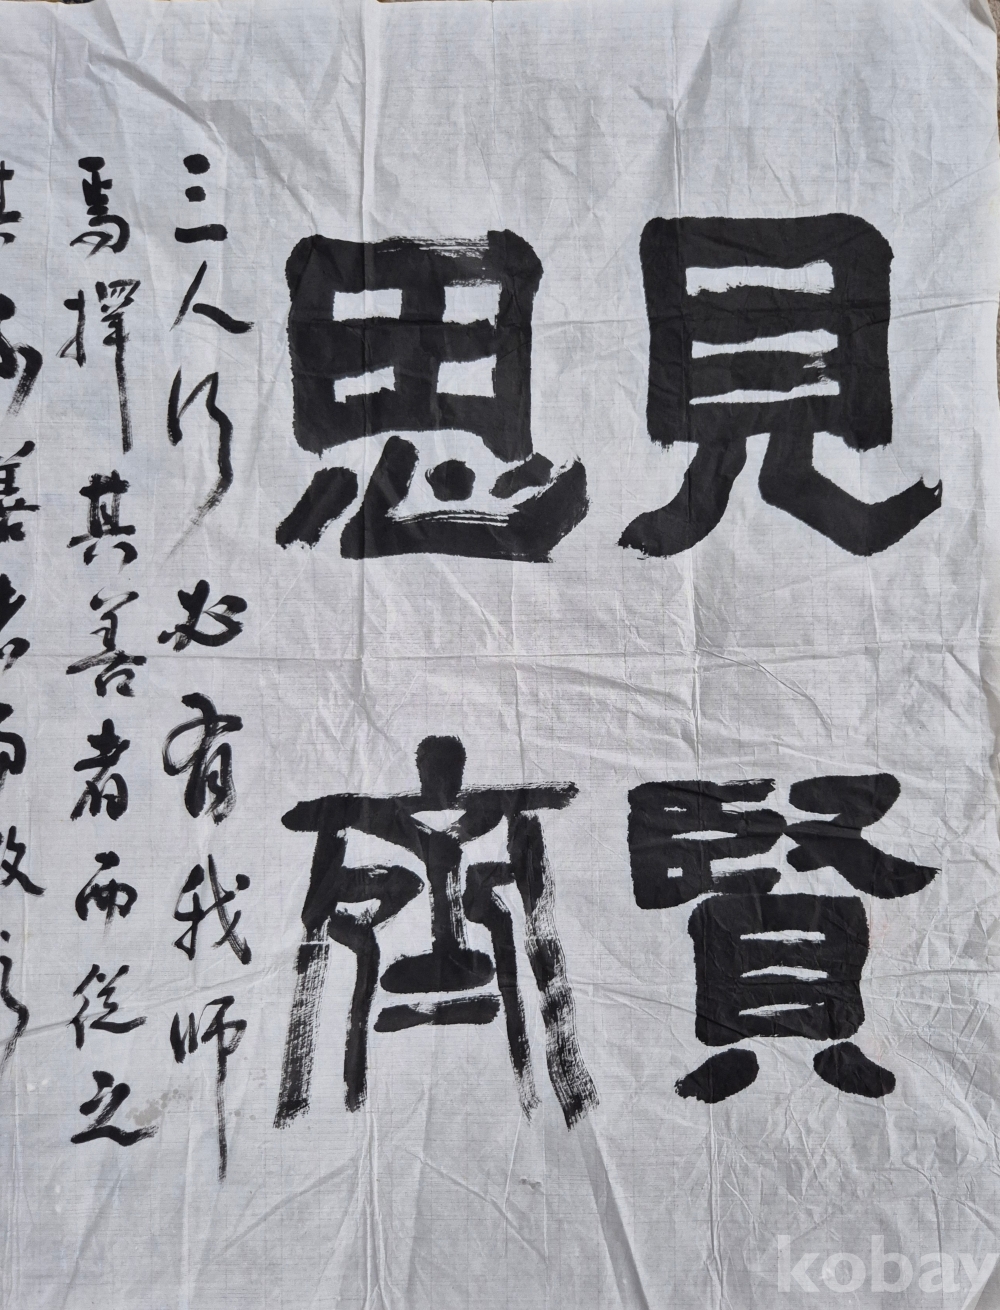 見賢
思齊
三人行必有我師
焉擇其善者而從之
其不善者而改之
kobay